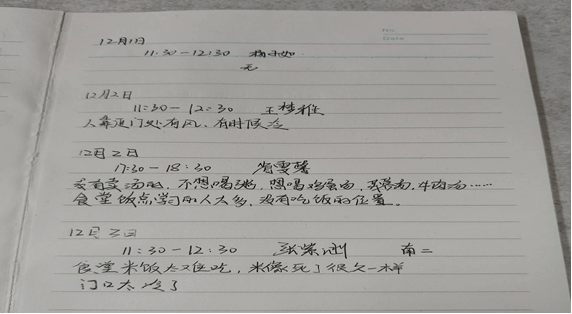 12月1日
11:30-12:30
无
12月2日
11:30-12:30 王梦雅
人靠近门处有风,有时候冷
12月2日
17:30-18:30
没有卖汤的,不想喝粥,想喝鸡蛋汤,牛肉汤……
食堂饭点学习的人太多,没有吃饭的位置。
12月3日
11:30-12:30 南二
食堂米饭太难吃,米像死了很久一样
门口太冷了